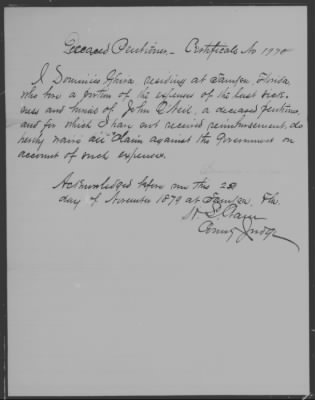 Deceased Pensioner - Certificate No 1770
I Dominico Ghira residing at Tampa Florida,
who bore a portion of the expenses of the last sick-
ness and burial of John O'Neil, a deceased pensioner,
and for which I have not received reimbursement, do
hereby waive all claim against the Government on
account of such expenses.
Acknowledged before me this 28
day of November 1879 at Tampa, Fla.
County Judge